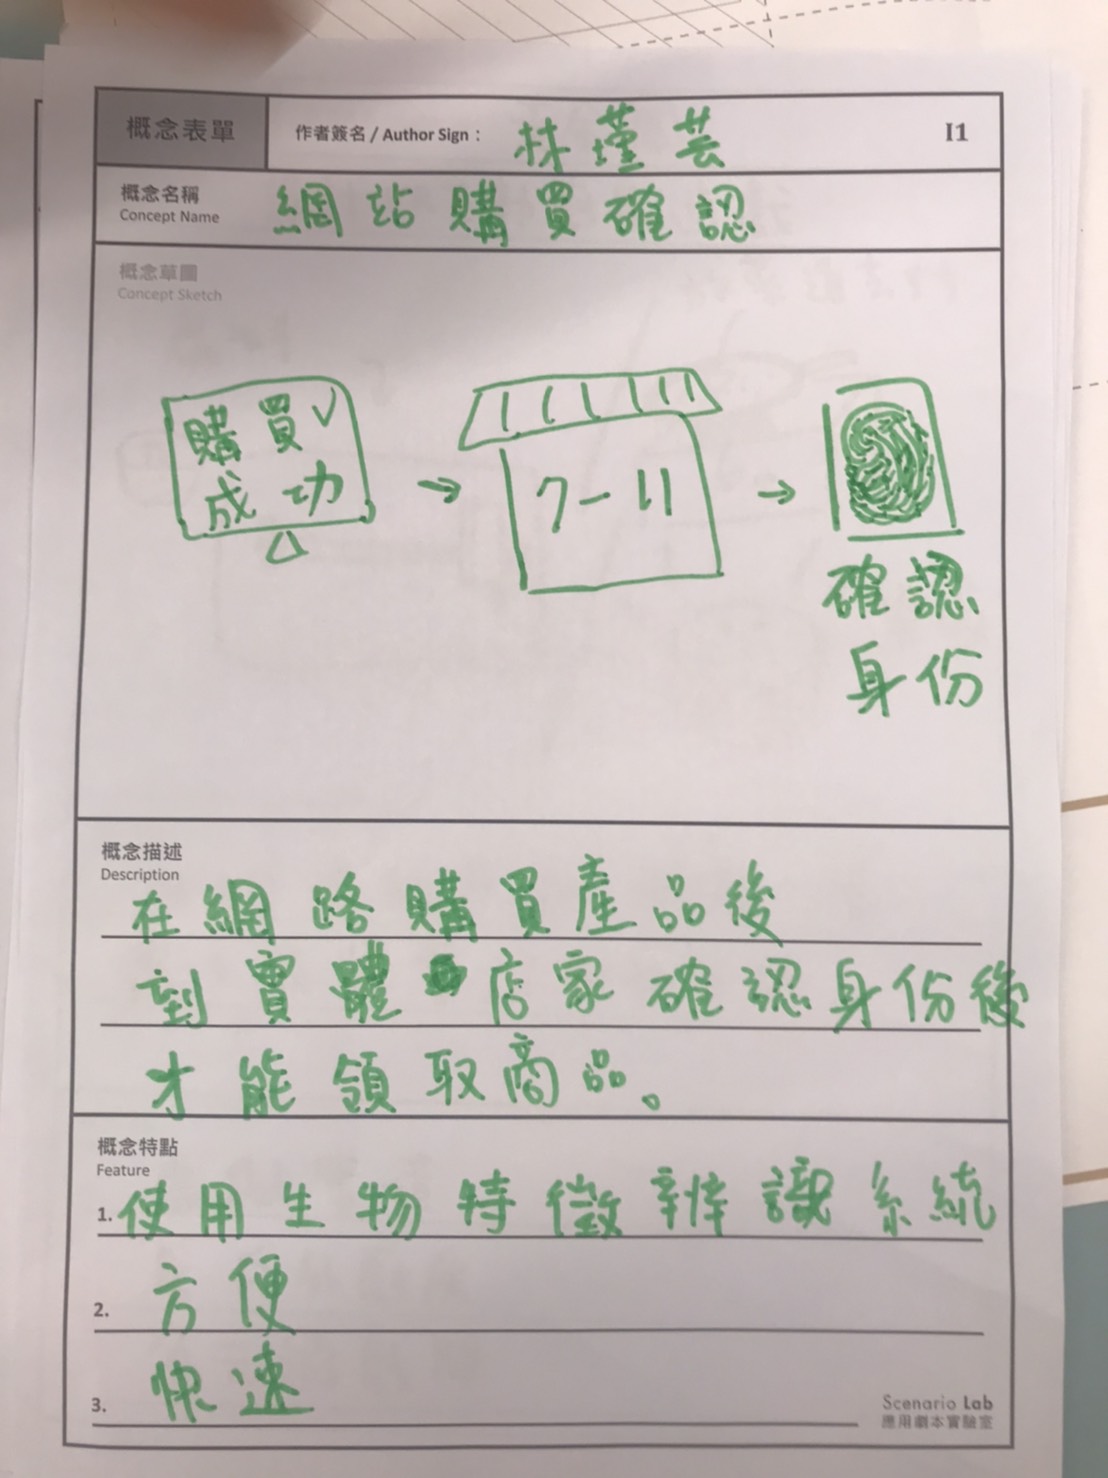 概念表單
作者簽名 / Author Sign： 林瑾芸
I1
概念名稱
Concept Name
網站購買確認
概念草圖
Concept Sketch
購買✓
成功
→
7-11
→
確認
身份
概念描述
Description
在網路購買產品後
到實體店家確認身份後
才能領取商品。
概念特點
Feature
1. 使用生物特徵辨識系統
2. 方便
3. 快速
Scenario Lab
應用劇本實驗室